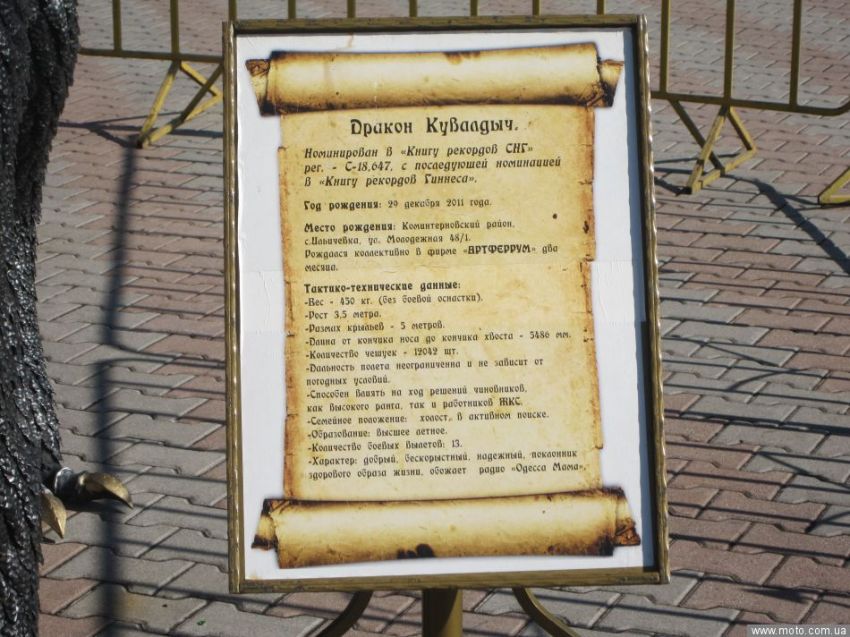 Дракон Кувалдыч.
Номинирован в «Книгу рекордов СНГ»
рег. - С-18,647, с последующей номинацией
в «Книгу рекордов Гиннеса».
Год рождения: 29 декабря 2011 года.
Место рождения: Коминтерновский район,
с.Ильичевка, ул. Молодежная 48/1.
Рождался коллективно в фирме «АРТФЕРРУМ» два
месяца.
Тактико-технические данные:
-Вес - 430 кг. (без боевой оснастки).
-Рост 3,5 метра.
-Размах крыльев - 5 метров.
-Длина от кончика носа до кончика хвоста - 5486 мм.
-Количество чешуек - 12042 шт.
-Дальность полета неограниченна и не зависит от
погодных условий.
-Способен влиять на ход решений чиновников,
как высокого ранга, так и работников ЖКС.
-Семейное положение: холост, в активном поиске.
-Образование: высшее летное.
-Количество боевых вылетов: 13.
-Характер: добрый, бескорыстный, надежный, поклонник
здорового образа жизни, обожает радио «Одесса Мама».
www.moto.com.ua